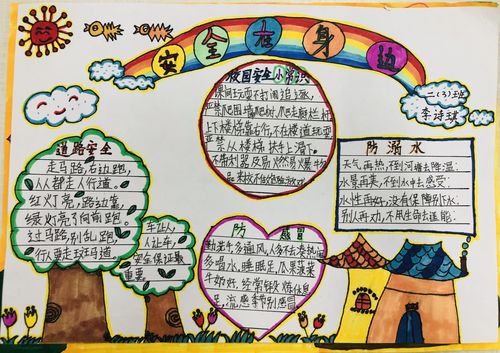 安全在身边
二(3)班
李诗琪
校园安全小常识
课间玩耍不打闹追逐,
严禁爬围墙爬树,爬走廊栏杆
上下楼梯靠右行,不在楼道玩耍
严禁从楼梯扶手上滑下。
不带利器及易燃易爆物
品
道路安全
走马路,右边跑,
人人都走人行道。
红灯亮,路边靠,
绿灯亮了向前跑。
过马路,别乱跑,
行人要走斑马道。
车让人,
人让车,
安全保证最
重要。
防溺水
天气再热,不到河塘去降温;
水景再美,不到水中去感受;
水性再好,没有保障别下水;
别人再劝,不用生命去逞能。
防感冒
勤洗手多通风,人多不去凑热闹
多喝水,睡眠足,瓜果蔬菜
牛奶好,经常锻炼休息
足,流感季节别感冒